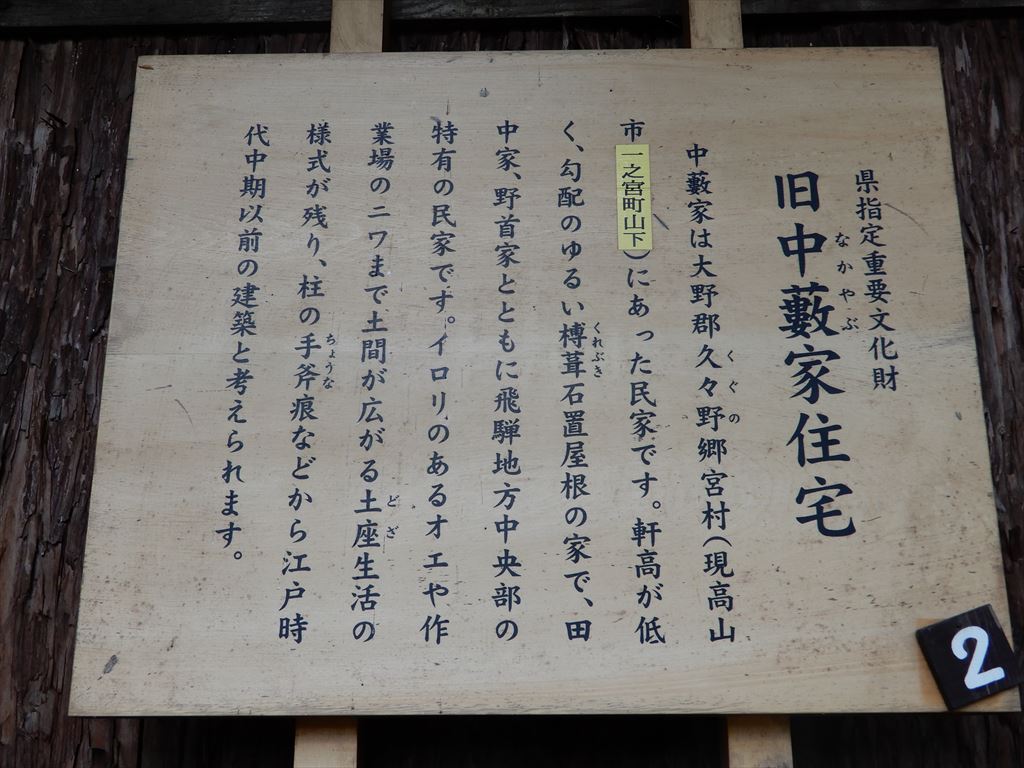 県指定重要文化財
旧中藪家住宅
なかやぶ
中藪家は大野郡久々野郷宮村(現高山
くぐの
市一之宮町山下)にあった民家です。軒高が低
く、勾配のゆるい榑葺石置屋根の家で、田
くれぶき
中家、野首家とともに飛騨地方中央部の
特有の民家です。イロリのあるオエや作
業場のニワまで土間が広がる土座生活の
どざ
様式が残り、柱の手斧痕などから江戸時
ちょうな
代中期以前の建築と考えられます。
2